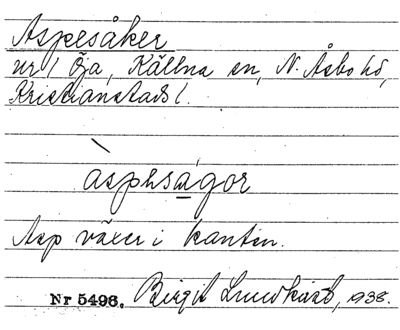 Aspesåker
nr 1 Öja, Källna sn, N. Åsbo hd,
Kristianstads l.
àsphság̀or
Asp växer i kanten.
Nr 5498. Birgit Lundkvist, 1938.